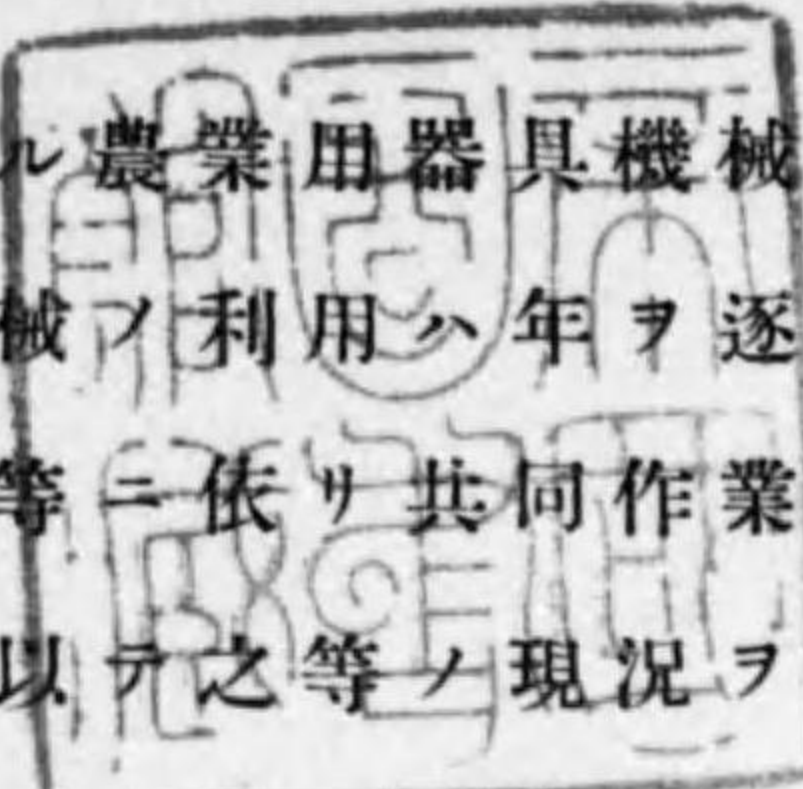 ル農業用器具機械
械ノ利用ハ年ヲ逐
等ニ依リ共同作業
以テ之等ノ現況ヲ